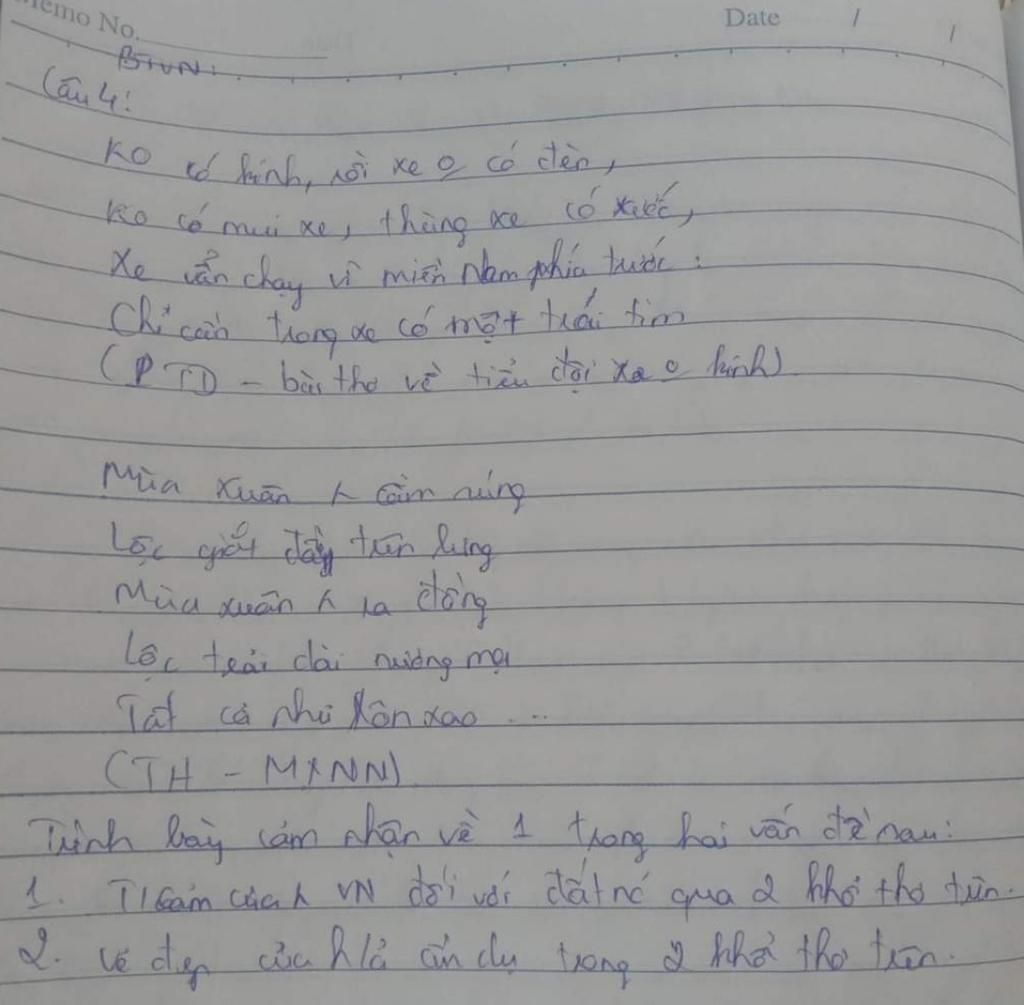 Memo No.
Date / /
BTVN:
Câu 4:
Ko có kính, rồi xe o có đèn,
Ko có mui xe, thùng xe có xước,
Xe vẫn chạy vì miền Nam phía trước:
Chỉ cần trong xe có một trái tim
(PTD - bài thơ về tiểu đội xe o kính)
Mùa xuân cầm súng
Lộc giắt đầy trên lưng
Mùa xuân ra đồng
Lộc trải dài nương mạ
Tất cả như xôn xao ...
(TH - MXNN)
Trình bày cảm nhận về 1 trong hai vấn đề sau:
1. T/cảm của VN đối với đất nc qua 2 khổ thơ trên.
2. Vẻ đẹp của h/ả ẩn dụ trong 2 khổ thơ trên.